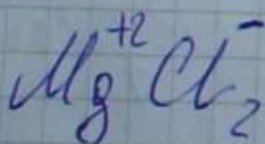 Mg⁺²Cl⁻₂